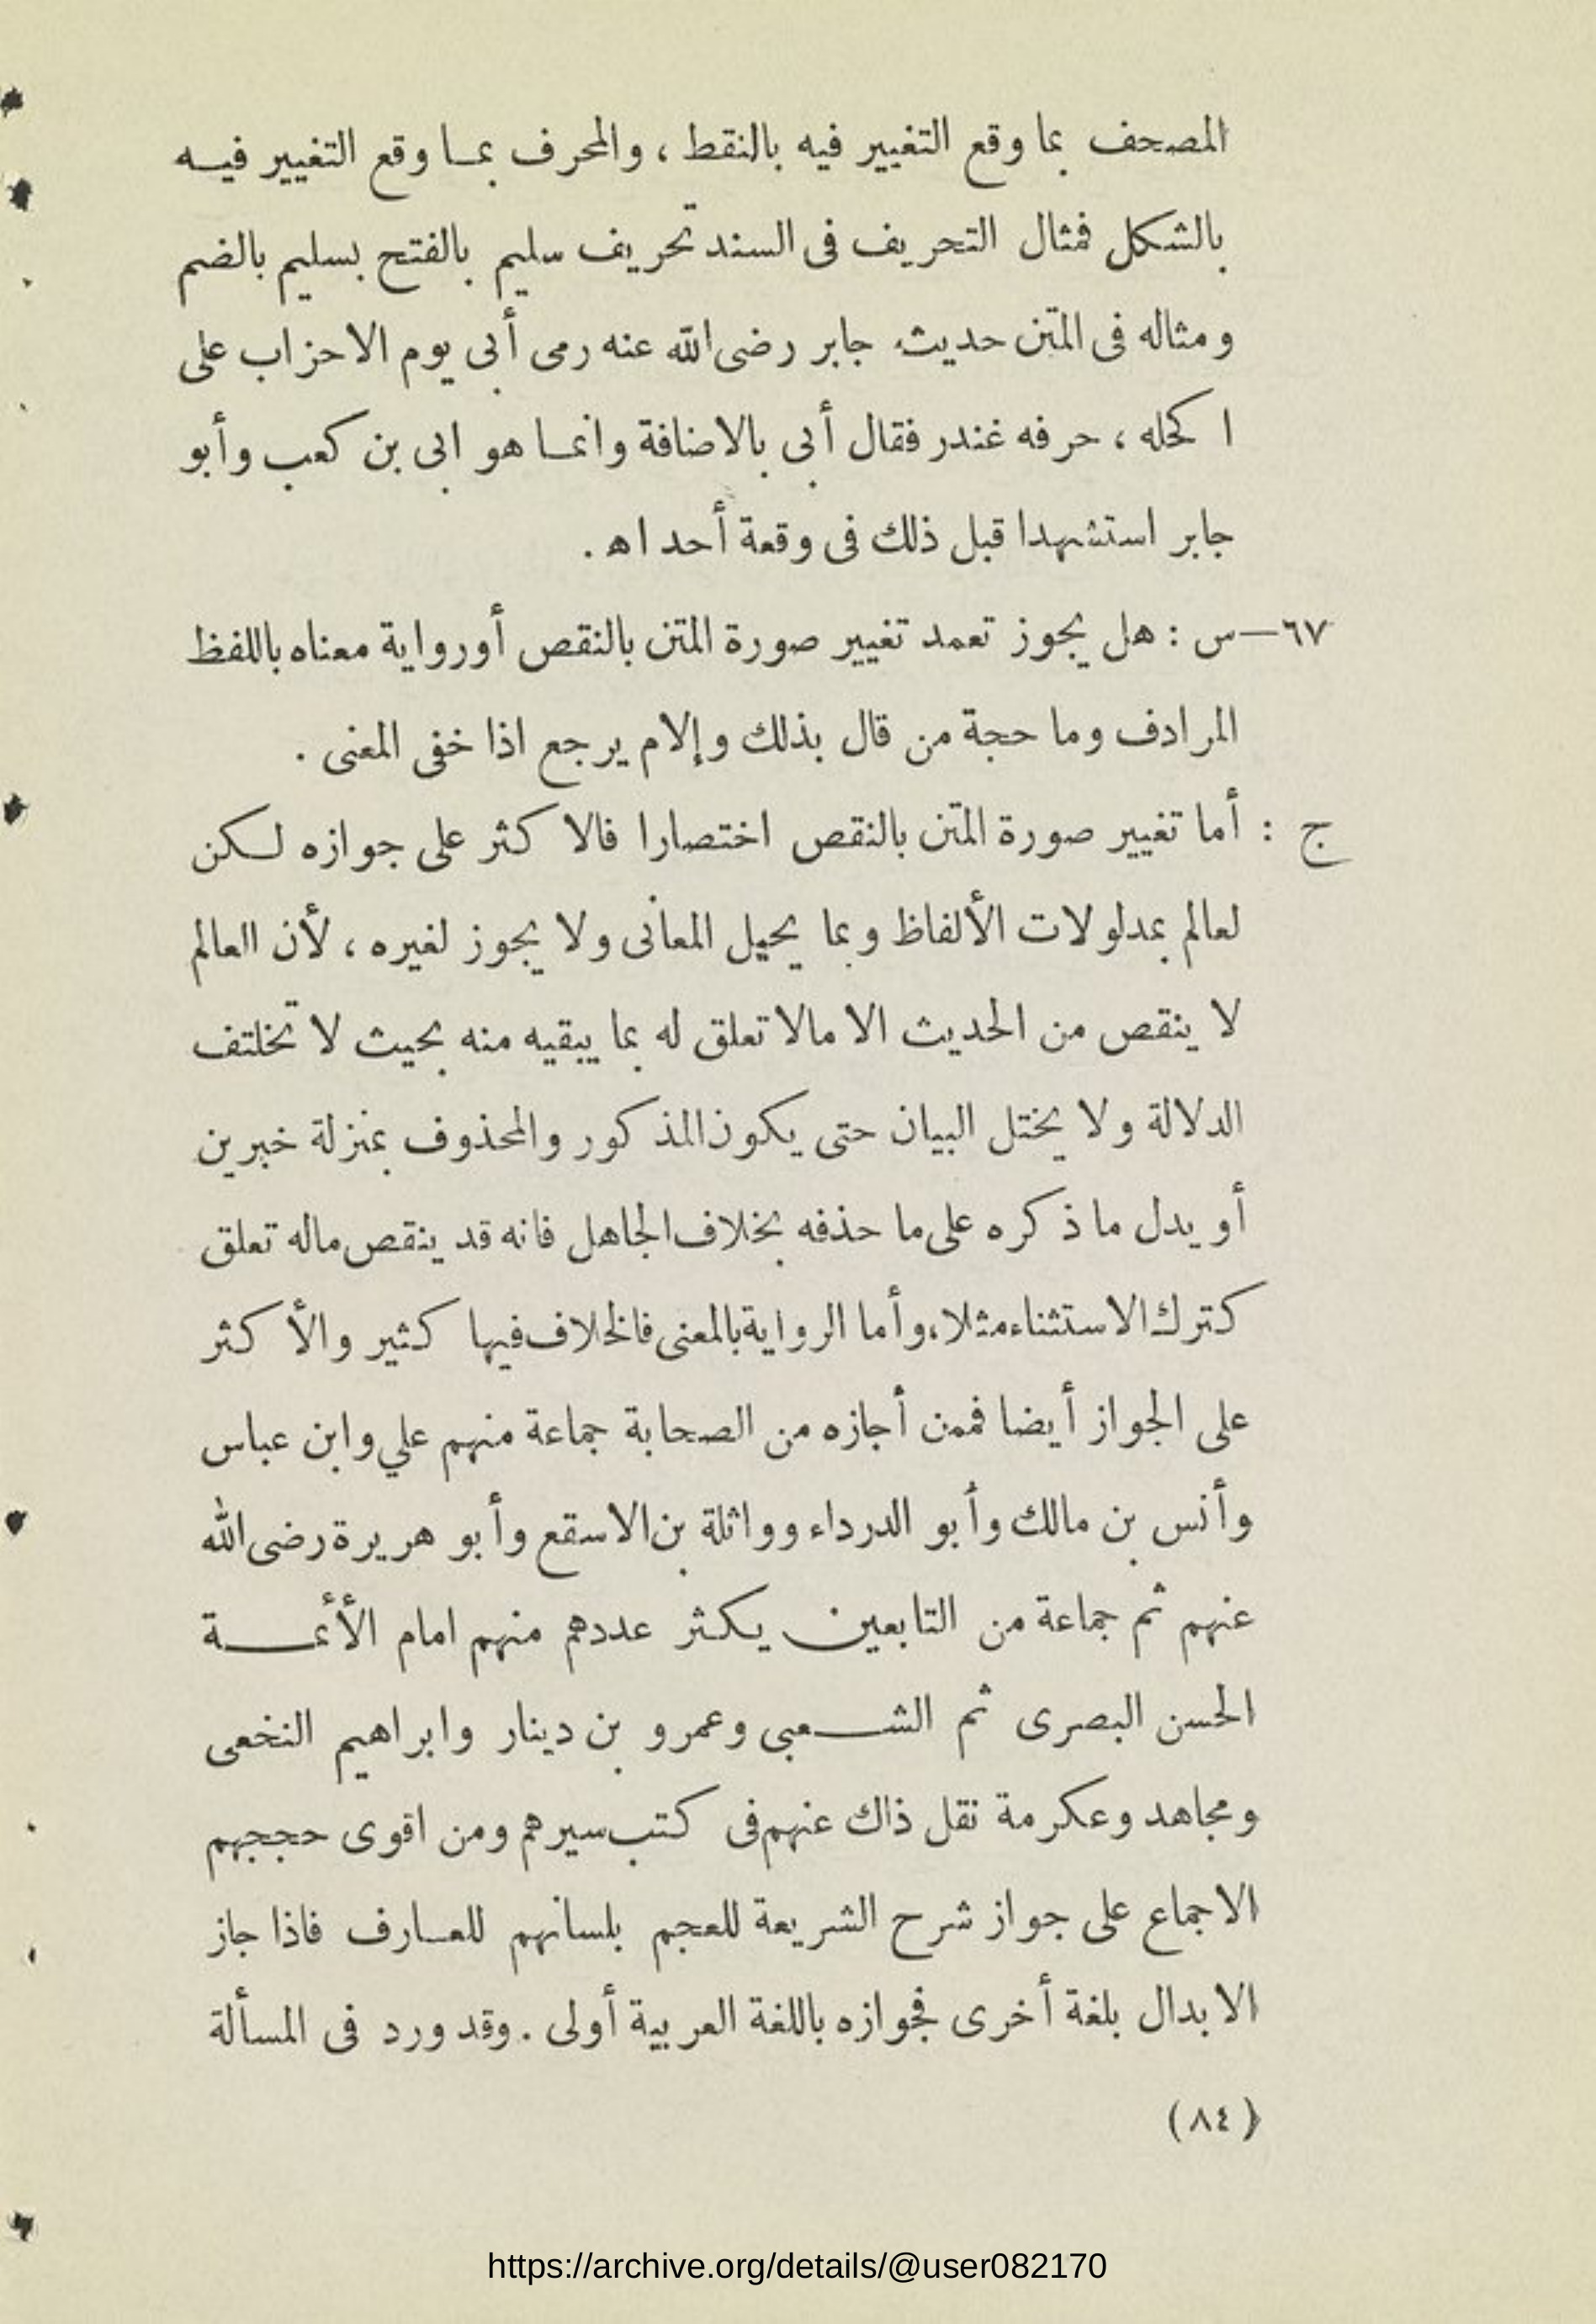 المصحف بما وقع التغيير فيه بالنقط ، والمحرف بما وقع التغيير فيه
بالشكل فمثال التحريف فى السند تحريف سليم بالفتح بسليم بالضم
ومثاله فى المتن حديث جابر رضى الله عنه رمى أبى يوم الاحزاب على
اكحله ، حرفه غندر فقال أبى بالاضافة وانما هو ابى بن كعب وأبو
جابر استشهدا قبل ذلك فى وقعة أحد اه .
٦٧—س : هل يجوز تعمد تغيير صورة المتن بالنقص أو رواية معناه باللفظ
المرادف وما حجة من قال بذلك وإلام يرجع اذا خفى المعنى .
ج : أما تغيير صورة المتن بالنقص اختصارا فالاكثر على جوازه لكن
لعالم بمدلولات الألفاظ وبما يحيل المعانى ولا يجوز لغيره ، لأن العالم
لا ينقص من الحديث الا مالا تعلق له بما يبقيه منه بحيث لا تختلف
الدلالة ولا يختل البيان حتى يكون المذكور والمحذوف بمنزلة خبرين
أو يدل ما ذكره على ما حذفه بخلاف الجاهل فانه قد ينقص ماله تعلق
كترك الاستثناء مثلا، وأما الرواية بالمعنى فالخلاف فيها كثير والأكثر
على الجواز أيضا فممن أجازه من الصحابة جماعة منهم علي وابن عباس
وأنس بن مالك وأبو الدرداء وواثلة بن الاسقع وأبو هريرة رضى الله
عنهم ثم جماعة من التابعين يكثر عددهم منهم امام الأئمة
الحسن البصرى ثم الشعبى وعمرو بن دينار وابراهيم النخعى
ومجاهد وعكرمة نقل ذاك عنهم فى كتب سيرهم ومن اقوى حججهم
الاجماع على جواز شرح الشريعة للعجم بلسانهم للعارف فاذا جاز
الابدال بلغة أخرى فجوازه باللغة العربية أولى . وقد ورد فى المسألة
(٨٤)
https://archive.org/details/@user082170